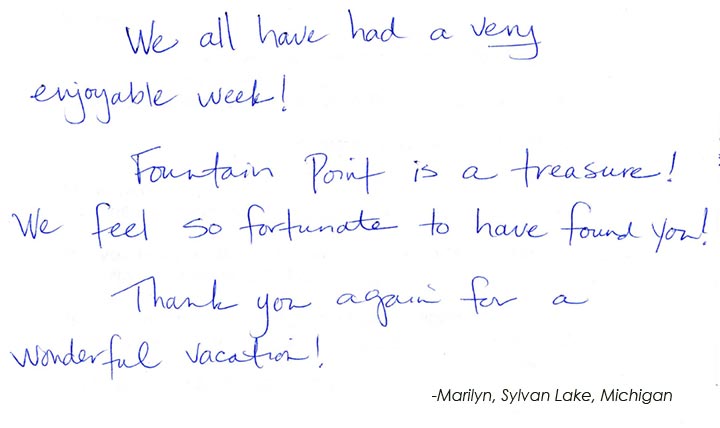 We all have had a very
enjoyable week!
Fountain Point is a treasure!
We feel so fortunate to have found you!
Thank you again for a
wonderful vacation!
-Marilyn, Sylvan Lake, Michigan